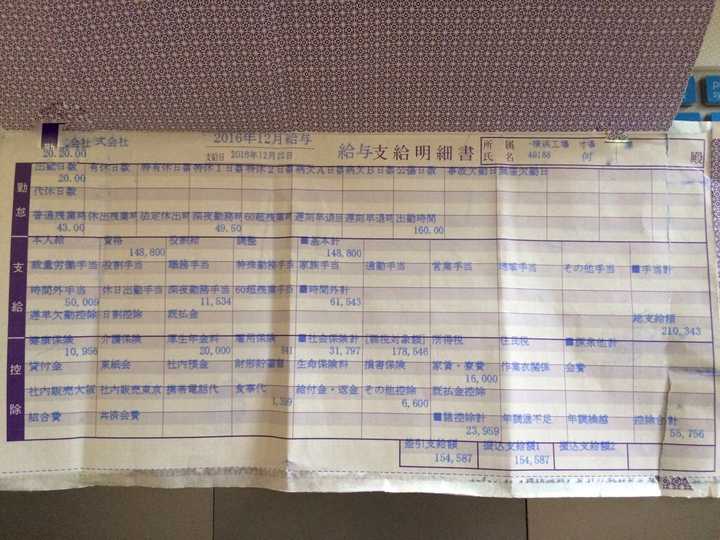 会社 式会社 2016年12月給与 給与支給明細書 所属 横浜工場
20.20.00 支給日 2016年12月28日 氏名 49188 何 殿
勤怠
出勤日数 有休日数 特有休日数 特休1日数 特休2日数 病欠A日数 病欠B日数 公傷日数 事故欠勤日 無届欠勤日
20.00
代休日数
普通残業時 休出残業時 法定休出時 深夜勤務時 60超残業時 遅刻早退回 遅刻早退時 出勤時間
43.00 49.50 160.00
支給
本人給 資格 役割給 調整 ■基本計
148,800 148,800
役割手当 職務手当 特殊勤務手当 家族手当 通勤手当 営業手当 地域手当 その他手当 ■手当計
時間外手当 休日出勤手当 深夜勤務手当 60超残業手当 ■時間外計
50,009 11,534 61,543
遅早欠勤控除 日割控除 既払金 総支給額
210,343
控除
健康保険 介護保険 厚生年金料 雇用保険 ■社会保険計 [課税対象額] 所得税 住民税
10,956 20,000 841 31,797 178,546
貸付金 東紙会 社内預金 生命保険料 損害保険 家賃・寮費 作業衣関係 会費
16,000
社内販売大阪 社内販売東京 携帯電話代 食事代 給付金・返金 その他控除 既払金控除
6,600
組合費 共済会費 ■諸控除計 年調過不足 年調繰越 控除合計
23,959 55,756
差引支給額 振込支給額1 振込支給額2
154,587 154,587